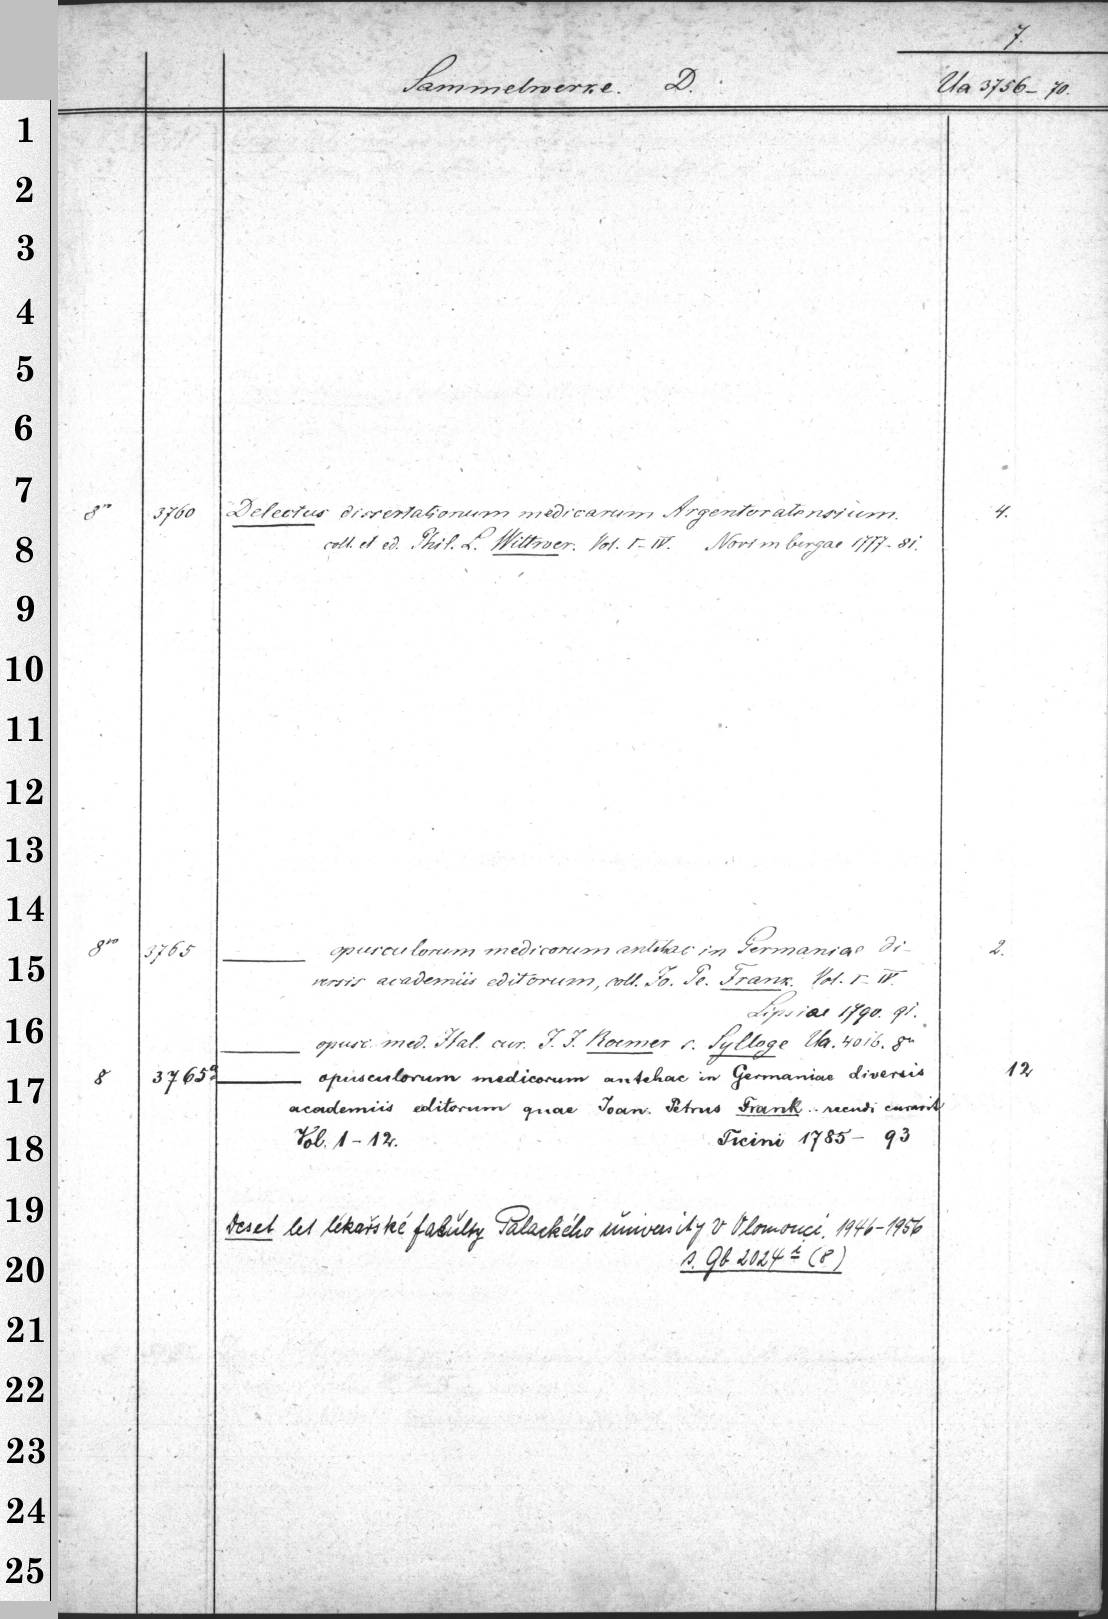 7.
Sammelwerke. D. Ua 3756-70.
1
2
3
4
5
6
7
8º 3760 Delectus dissertationum medicarum Argentoratensium. 4.
8
coll. et ed. Phil. L. Wittwer. Vol. I-IV. Norimbergae 1777-81.
9
10
11
12
13
14
8vo 3765 ——— opusculorum medicorum antehac in Germaniae di- 2.
15
versis academiis editorum, coll. Jo. Pe. Frank. Vol. I-IV.
Lipsiae 1790. 91.
16
——— opusc. med. Ital. cur. J. J. Roemer s. Sylloge Ua. 4016. 8º
17
8 3765a ——— opusculorum medicorum antehac in Germaniae diversis 12
academiis editorum quae Joan. Petrus Frank .. recudi curavit
18
Vol. 1-12. Ticini 1785-93
19
Deset let lékařské fakulty Palackého university v Olomouci. 1946-1956
20
s. Qb 2024 (8)
21
22
23
24
25